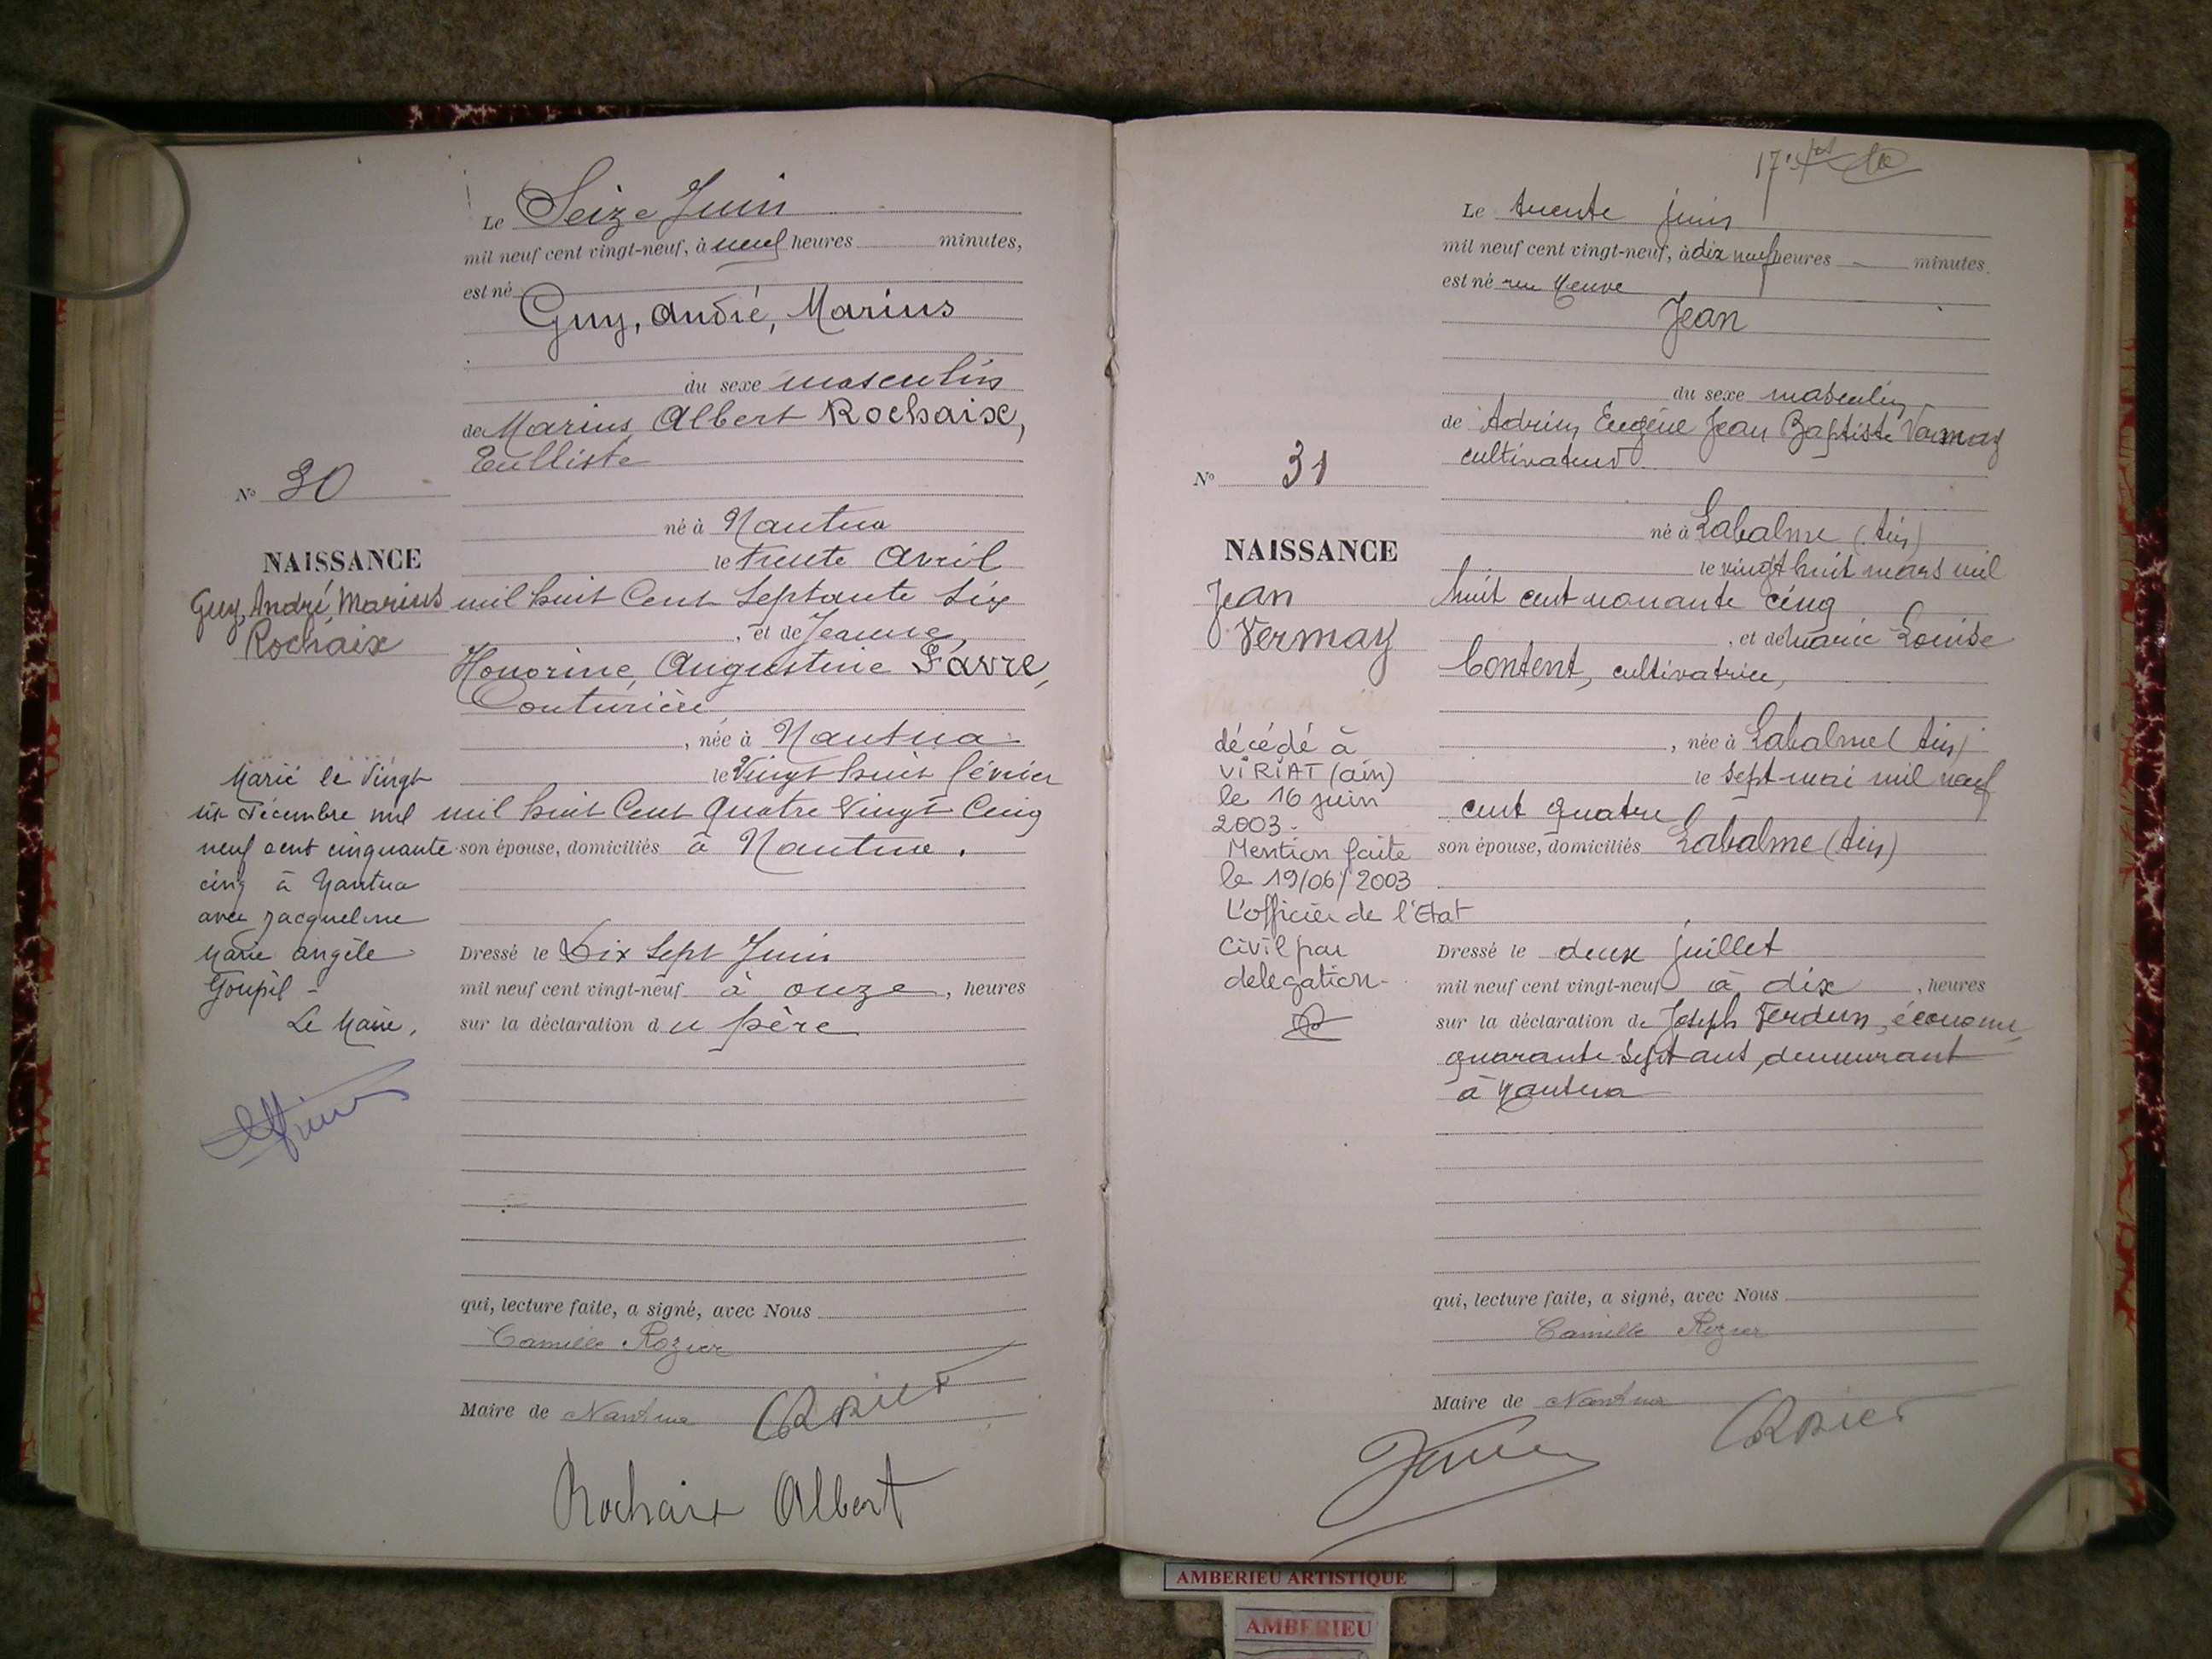 Le Seize Juin
mil neuf cent vingt-neuf, à neuf heures minutes,
est né
Guy, André, Marius
du sexe masculin
de Marius Albert Rochaix,
Tulliste
N° 30
né à Nantua
NAISSANCE
le trente Avril
Guy, André, Marius
Rochaix
mil huit Cent Septante Six
, et de Jeanne,
Honorine, Augustine Favre,
Couturière
, née à Nantua
le Vingt huit février
mil huit Cent Quatre Vingt Cinq
son épouse, domiciliés à Nantua.
Marié le Vingt
six Décembre mil
neuf cent cinquante
cinq à Nantua
avec Jacqueline
Marie Angèle
Goupil -
Le Maire,
Dressé le Dix Sept Juin
mil neuf cent vingt-neuf à onze, heures
sur la déclaration du père
qui, lecture faite, a signé, avec Nous
Camille Rozier
Maire de Nantua CRozier
Rochaix Albert
Le trente juin
mil neuf cent vingt-neuf, à dix neuf heures minutes.
est né rue Neuve
Jean
du sexe masculin
de Adrien Eugène Jean Baptiste Vermay
cultivateur
N° 31
né à Labalme (Ain)
NAISSANCE
le vingt huit mars mil
Jean
Vermay
huit cent nonante cinq
, et de Marie Louise
Content, cultivatrice,
, née à Labalme (Ain)
le sept mai mil neuf
cent quatre
son épouse, domiciliés Labalme (Ain)
décédé à
VIRIAT (ain)
le 16 juin
2003.
Mention faite
le 19/06/2003
L'officier de l'Etat
Civil par
delegation-
Dressé le deux juillet
mil neuf cent vingt-neuf à dix, heures
sur la déclaration de Joseph Verdun, économe,
quarante sept ans, demeurant
à Nantua
qui, lecture faite, a signé, avec Nous
Camille Rozier
Maire de Nantua CRozier
AMBERIEU ARTISTIQUE
AMBERIEU